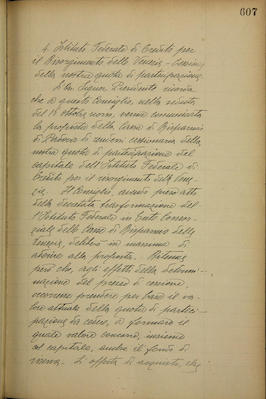 607
4. Istituto Federale di Credito per
il Risorgimento delle Venezie - Cessione
della nostra quota di partecipazione.
Il Signor Presidente ricorda
che a questo Consiglio, nella seduta
del 18 ottobre scorso, venne comunicata
la proposta della Cassa di Risparmio
di Padova di rendersi cessionaria della
nostra quota di partecipazione del
capitale dell'Istituto Federale di
Credito per il risorgimento delle Vene
zie. Il Consiglio, avendo preso atto
della decretata trasformazione del
l'Istituto Federale in Ente Consor
ziale delle Casse di Risparmio delle
Venezie, deliberò in massima di
aderire alla proposta. Ritenne
però che, agli effetti della determi-
nazione del prezzo di cessione,
occorresse prendere per base il va-
lore attuale della quota di parteci-
pazione da cedere, a formare il
quale valore concorre, insieme
col capitale, anche il fondo di
riserva. L'offerta di acquisto, che,